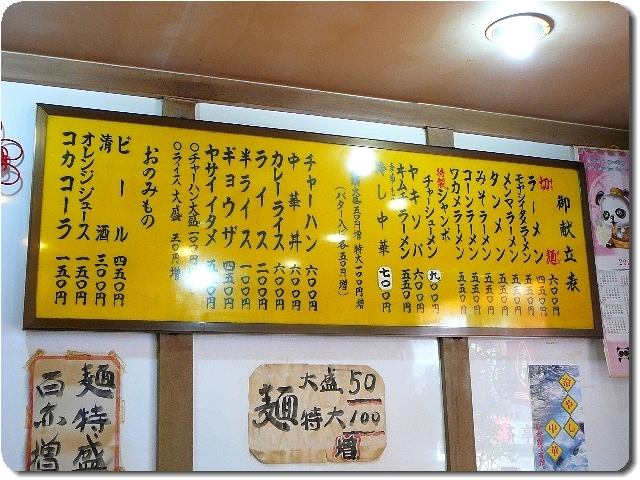 御献立表
切麺
ラーメン 四五〇円
モヤシイタメラーメン 六〇〇円
メンマラーメン 五五〇円
タンメン 五五〇円
みそラーメン 五五〇円
コーンラーメン 五五〇円
ワカメラーメン 五五〇円
特製ジャンボ
チャーシューメン
キムチラーメン 五五〇円
ヤキソバ 六〇〇円
冷し中華 七〇〇円
大盛五〇円増 特大一〇〇円増
(バター入り各五〇円増)
チャーハン 六〇〇円
中華丼 六〇〇円
カレーライス 六〇〇円
ライス 二〇〇円
半ライス 一〇〇円
ギョウザ 四五〇円
ヤサイイタメ
〇チャーハン大盛一〇〇円
〇ライス大盛 五〇円増
おのみもの
ビール 四五〇円
清酒 三〇〇円
オレンジジュース 一五〇円
コカコーラ 一五〇円
麺特盛
百示増
麺
大盛50
特大100
増
冷やし中華